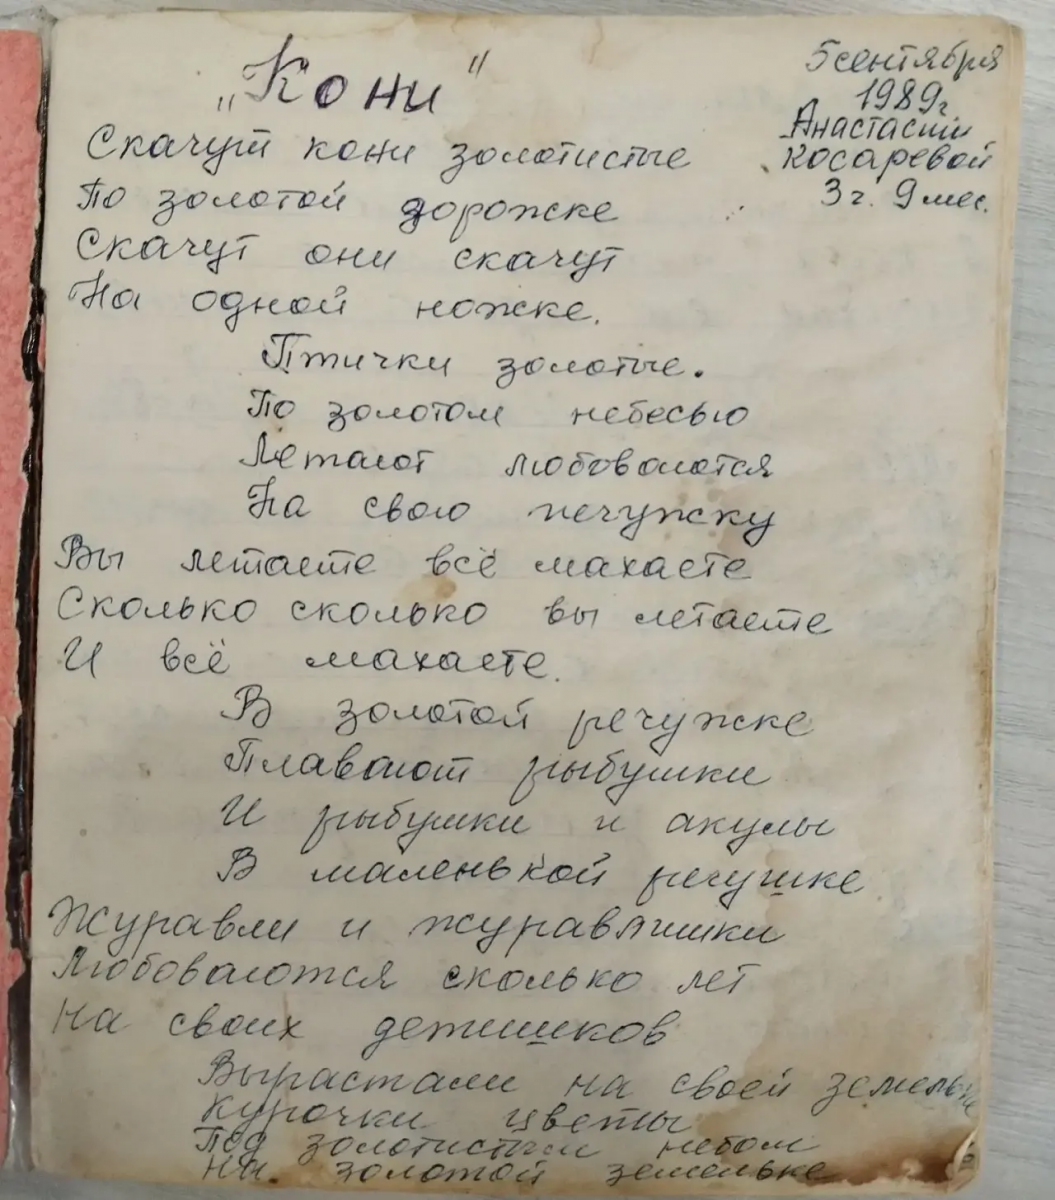 „Кони"
5 сентября
1989г
Анастасии
Косаревой
3 г. 9 мес.
Скачут кони золотистые
По золотой дорожке
Скачут они скачут
На одной ножке.
Птички золотые.
По золотом небесью
Летают любоваются
На свою печужку
Вы летаете всё махаете
Сколько сколько вы летаете
И всё махаете.
В золотой речужке
Плавают рыбушки
И рыбушки и акулы
В маленькой речушке
Журавли и журавлишки
Любоваются сколько лет
На своих детишков
Вырастали на своей земельке
Курочки цветы
Под золотистым небом
На золотой земельке